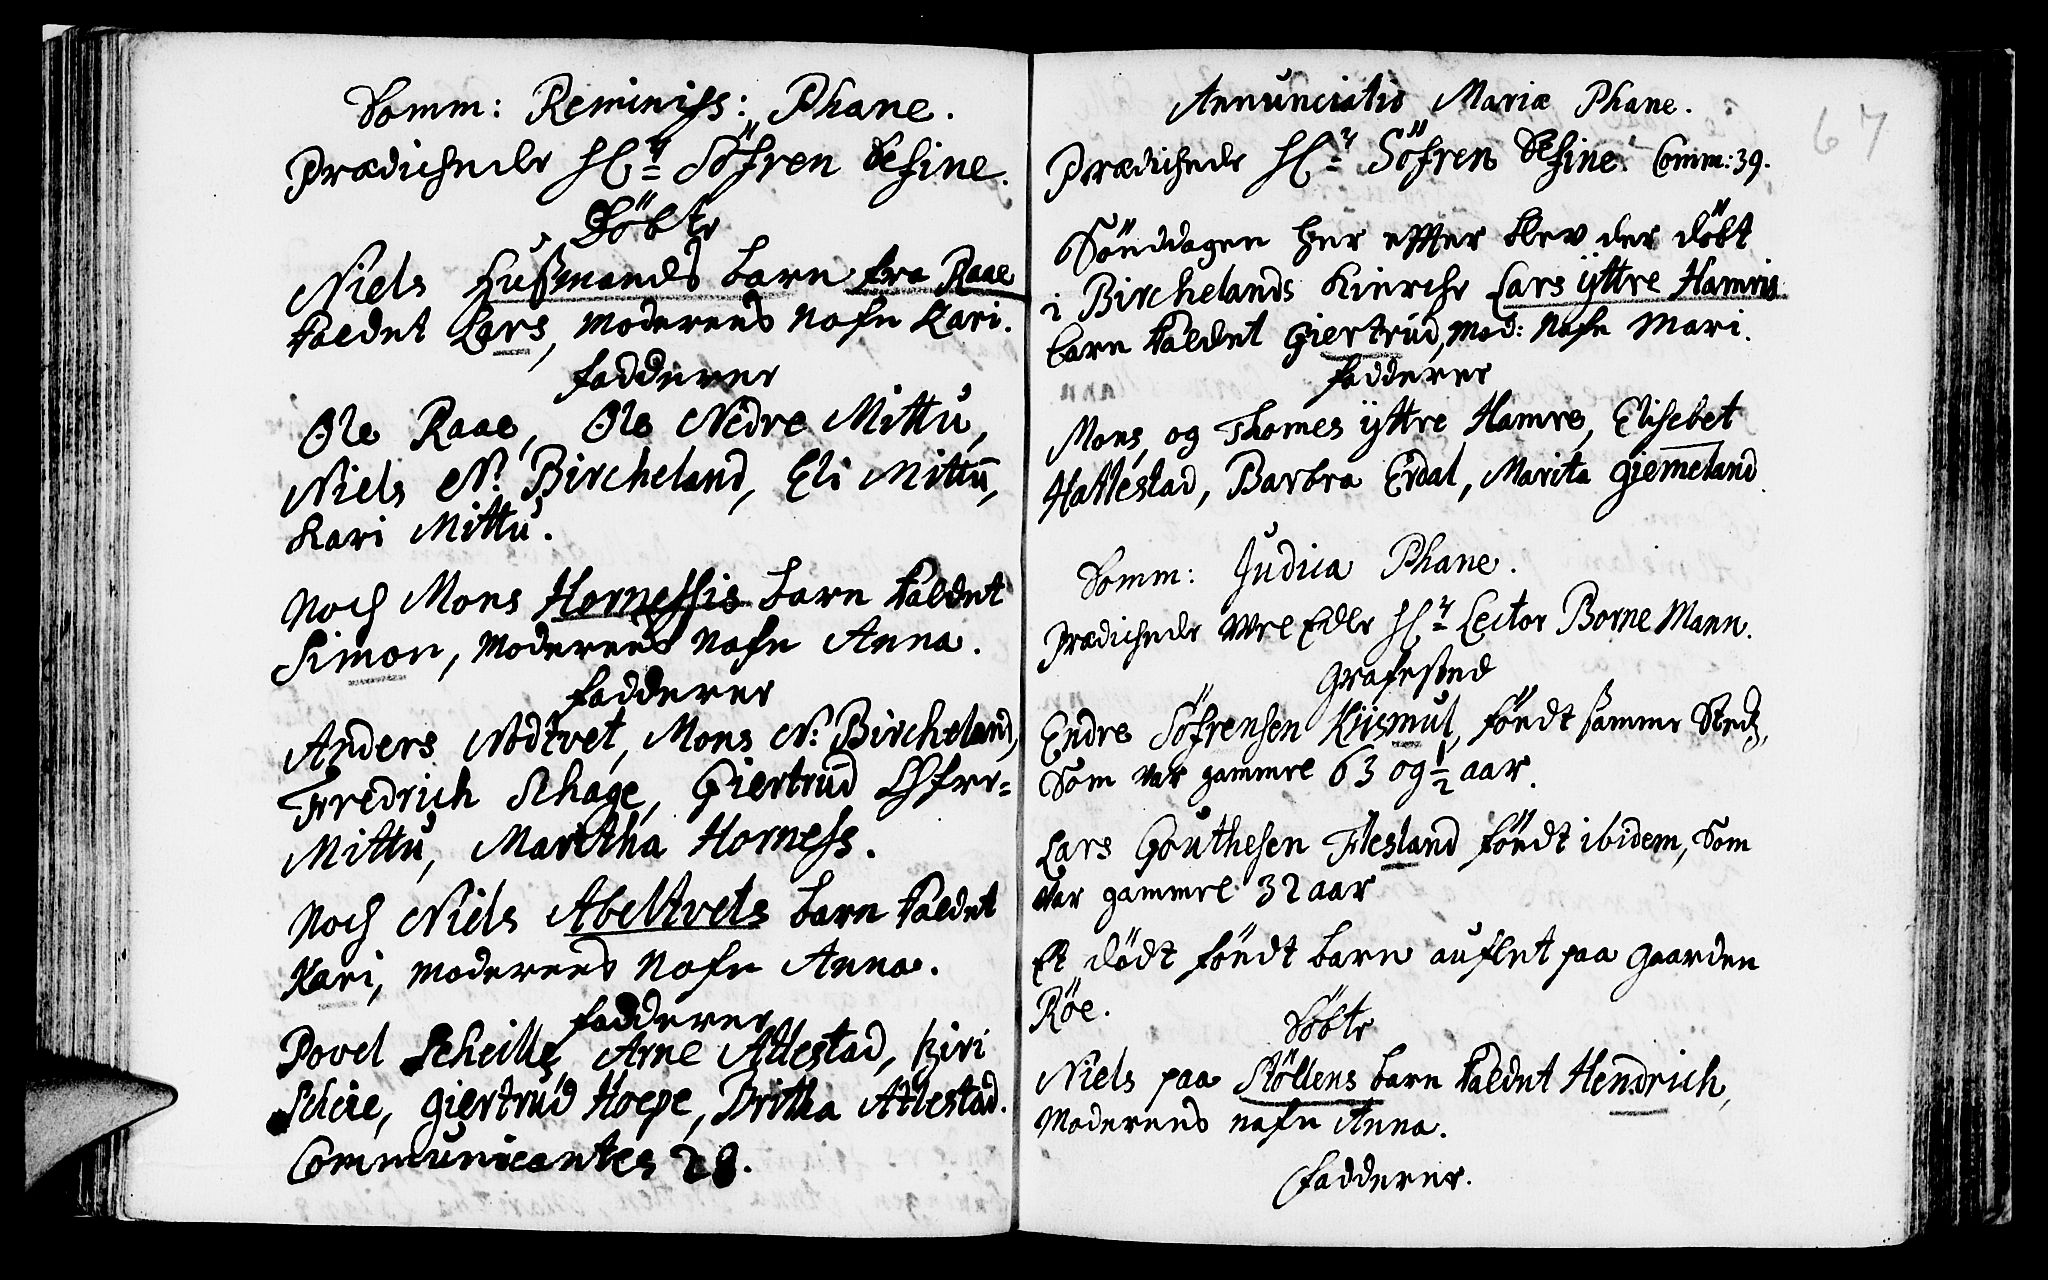 Domm: Reminiss: Phane.
Prædichede Hr: Söfren Sefine.
Döbte
Niels Hußmands barn fra Raae
kaldet Lars, Moderens Nafn Kari.
fadderer
Ole Raae, Ole Nedre Mittu,
Niels N: Bircheland, Eli Mittu,
Kari Mittu.
Noch Mons Hornessis barn kaldet
Simon, Moderens Nafn Anna.
fadderer
Anders Nödtvet, Mons N: Bircheland,
Fredrich Schage, Giertrud
Mittu, Maritha Horness.
Noch Niels Abeltvets barn kaldet
Kari, Moderens Nafn Anna.
fadderer
Povel Scheille, Arne Atlestad, Siri
Scheie, Giertrud Hoepe, Britha Atlestad.
Communicantes 28.
67
Annunciatio Mariæ Phane.
Prædichede Hr: Söfren Sefine. Comm: 39.
Sönddagen her effter blev der döbt
i Birchelands Kirche Lars ÿttre Hamris
barn kaldet Giertrud, Mod: Nafn Mari.
fadderer
Mons, og Thomes ÿttre Hamre, Elisebet
Hatlestad, Barbra Erdal, Marita Giemeland
Domm: Judica Phane.
Prædichede Vel Edle Hr: Lector Borne Mann.
Grafested
Endre Söfrensen Kiismul, föndt samme Steds,
Som var gammel 63 og ½ aar.
Lars Gouthesen Flesland föndt ibidem, Som
var gammel 32 aar
Et dödt föndt barn auflet paa gaarden
Röe.
Döbte
Niels paa Stöllens barn kaldet Hendrich,
Moderens nafn Anna.
Fadderer.